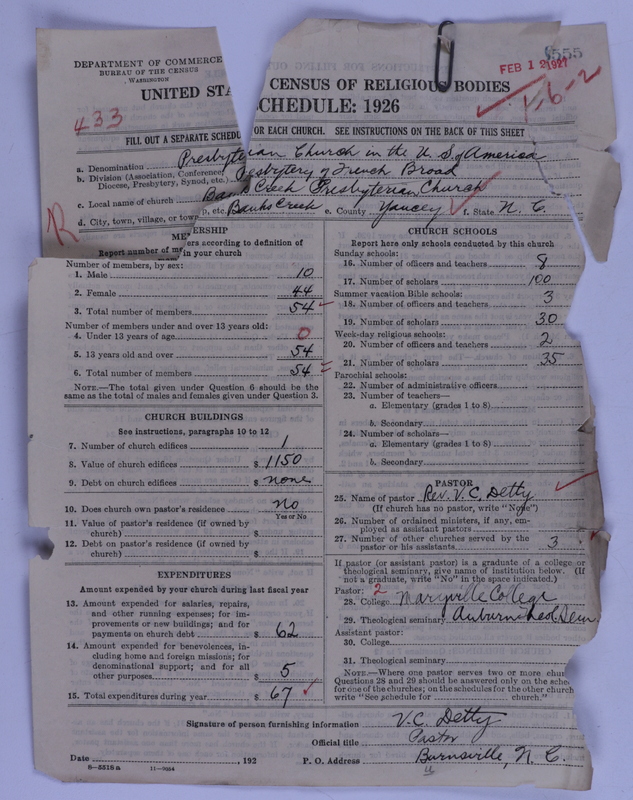 555
FEB 12 1927
DEPARTMENT OF COMMERCE
BUREAU OF THE CENSUS
WASHINGTON
UNITED STA CENSUS OF RELIGIOUS BODIES
CHEDULE: 1926
1-6-2
433
FILL OUT A SEPARATE SCHEDU OR EACH CHURCH. SEE INSTRUCTIONS ON THE BACK OF THIS SHEET
a. Denomination Presbyterian Church in the U. S. of America
b. Division (Association, Conference, Diocese, Presbytery, Synod, etc.) Presbytery of French Broad
c. Local name of church Banks Creek Presbyterian Church
d. City, town, village, or town p, etc. Banks Creek e. County Yancey f. State N. C.
R
ME ERSHIP
Report number of me ers according to definition of
in your church
Number of members, by sex:
1. Male 10
2. Female 44
3. Total number of members 54
Number of members under and over 13 years old:
4. Under 13 years of age 0
5. 13 years old and over 54
6. Total number of members 54
NOTE.—The total given under Question 6 should be
same as the total of males and females given under Question 3.
CHURCH BUILDINGS
See instructions, paragraphs 10 to 12
7. Number of church edifices 1
8. Value of church edifices $ 1150
9. Debt on church edifices $ none
10. Does church own pastor's residence? No
Yes or No
11. Value of pastor's residence (if owned by
church) $
12. Debt on pastor's residence (if owned by
church) $
EXPENDITURES
Amount expended by your church during last fiscal year
13. Amount expended for salaries, repairs,
and other running expenses; for im-
provements or new buildings; and for
payments on church debt $ 62
14. Amount expended for benevolences, in-
cluding home and foreign missions; for
denominational support; and for all
other purposes $ 5
15. Total expenditures during year $ 67
CHURCH SCHOOLS
Report here only schools conducted by this church
Sunday schools:
16. Number of officers and teachers 8
17. Number of scholars 100
Summer vacation Bible schools:
18. Number of officers and teachers 3
19. Number of scholars 30
Week-day religious schools:
20. Number of officers and teachers 2
21. Number of scholars 35
Parochial schools:
22. Number of administrative officers
23. Number of teachers—
a. Elementary (grades 1 to 8)
b. Secondary
24. Number of scholars—
a. Elementary (grades 1 to 8)
b. Secondary
PASTOR
25. Name of pastor Rev. V. C. Detty
(If church has no pastor, write "None")
26. Number of ordained ministers, if any, em-
ployed as assistant pastors
27. Number of other churches served by the
pastor or his assistants 3
If pastor (or assistant pastor) is a graduate of a college or
theological seminary, give name of institution below. (If
not a graduate, write "No" in the space indicated.)
Pastor: 2
28. College Maryville College
29. Theological seminary Auburn Theol. Sem
Assistant pastor:
30. College
31. Theological seminary
NOTE.—Where one pastor serves two or more church
Questions 28 and 29 should be answered only on the sche
for one of the churches; on the schedules for the other church
write "See schedule for church."
Signature of person furnishing information V. C. Detty
Official title Pastor
Date , 192 P. O. Address Burnsville, N. C.
8—5518 a 11—9084